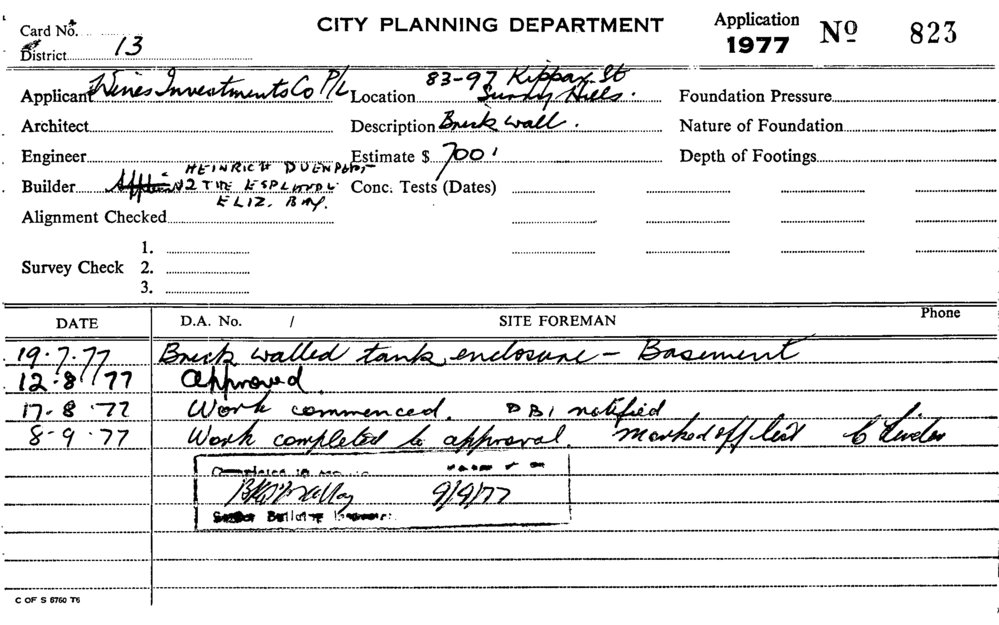 Card No. CITY PLANNING DEPARTMENT Application 1977 No 823
District 13
Applicant Investments Co P/L Location 83-97 Kippax St Surry Hills. Foundation Pressure
Architect Description Brick wall. Nature of Foundation
Engineer Estimate $ 700' Depth of Footings
Builder HEINRICH Conc. Tests (Dates)
ELIZ. BAY.
Alignment Checked
Survey Check 1.
2.
3.
DATE D.A. No. / SITE FOREMAN Phone
19.7.77 Brick walled tank enclosure - Basement
12.8.77 Approved.
17.8.77 Work commenced. DBI notified
8-9.77 Work completed to approval. Marked off list
9/9/77
Building
C OF S 6760 T6